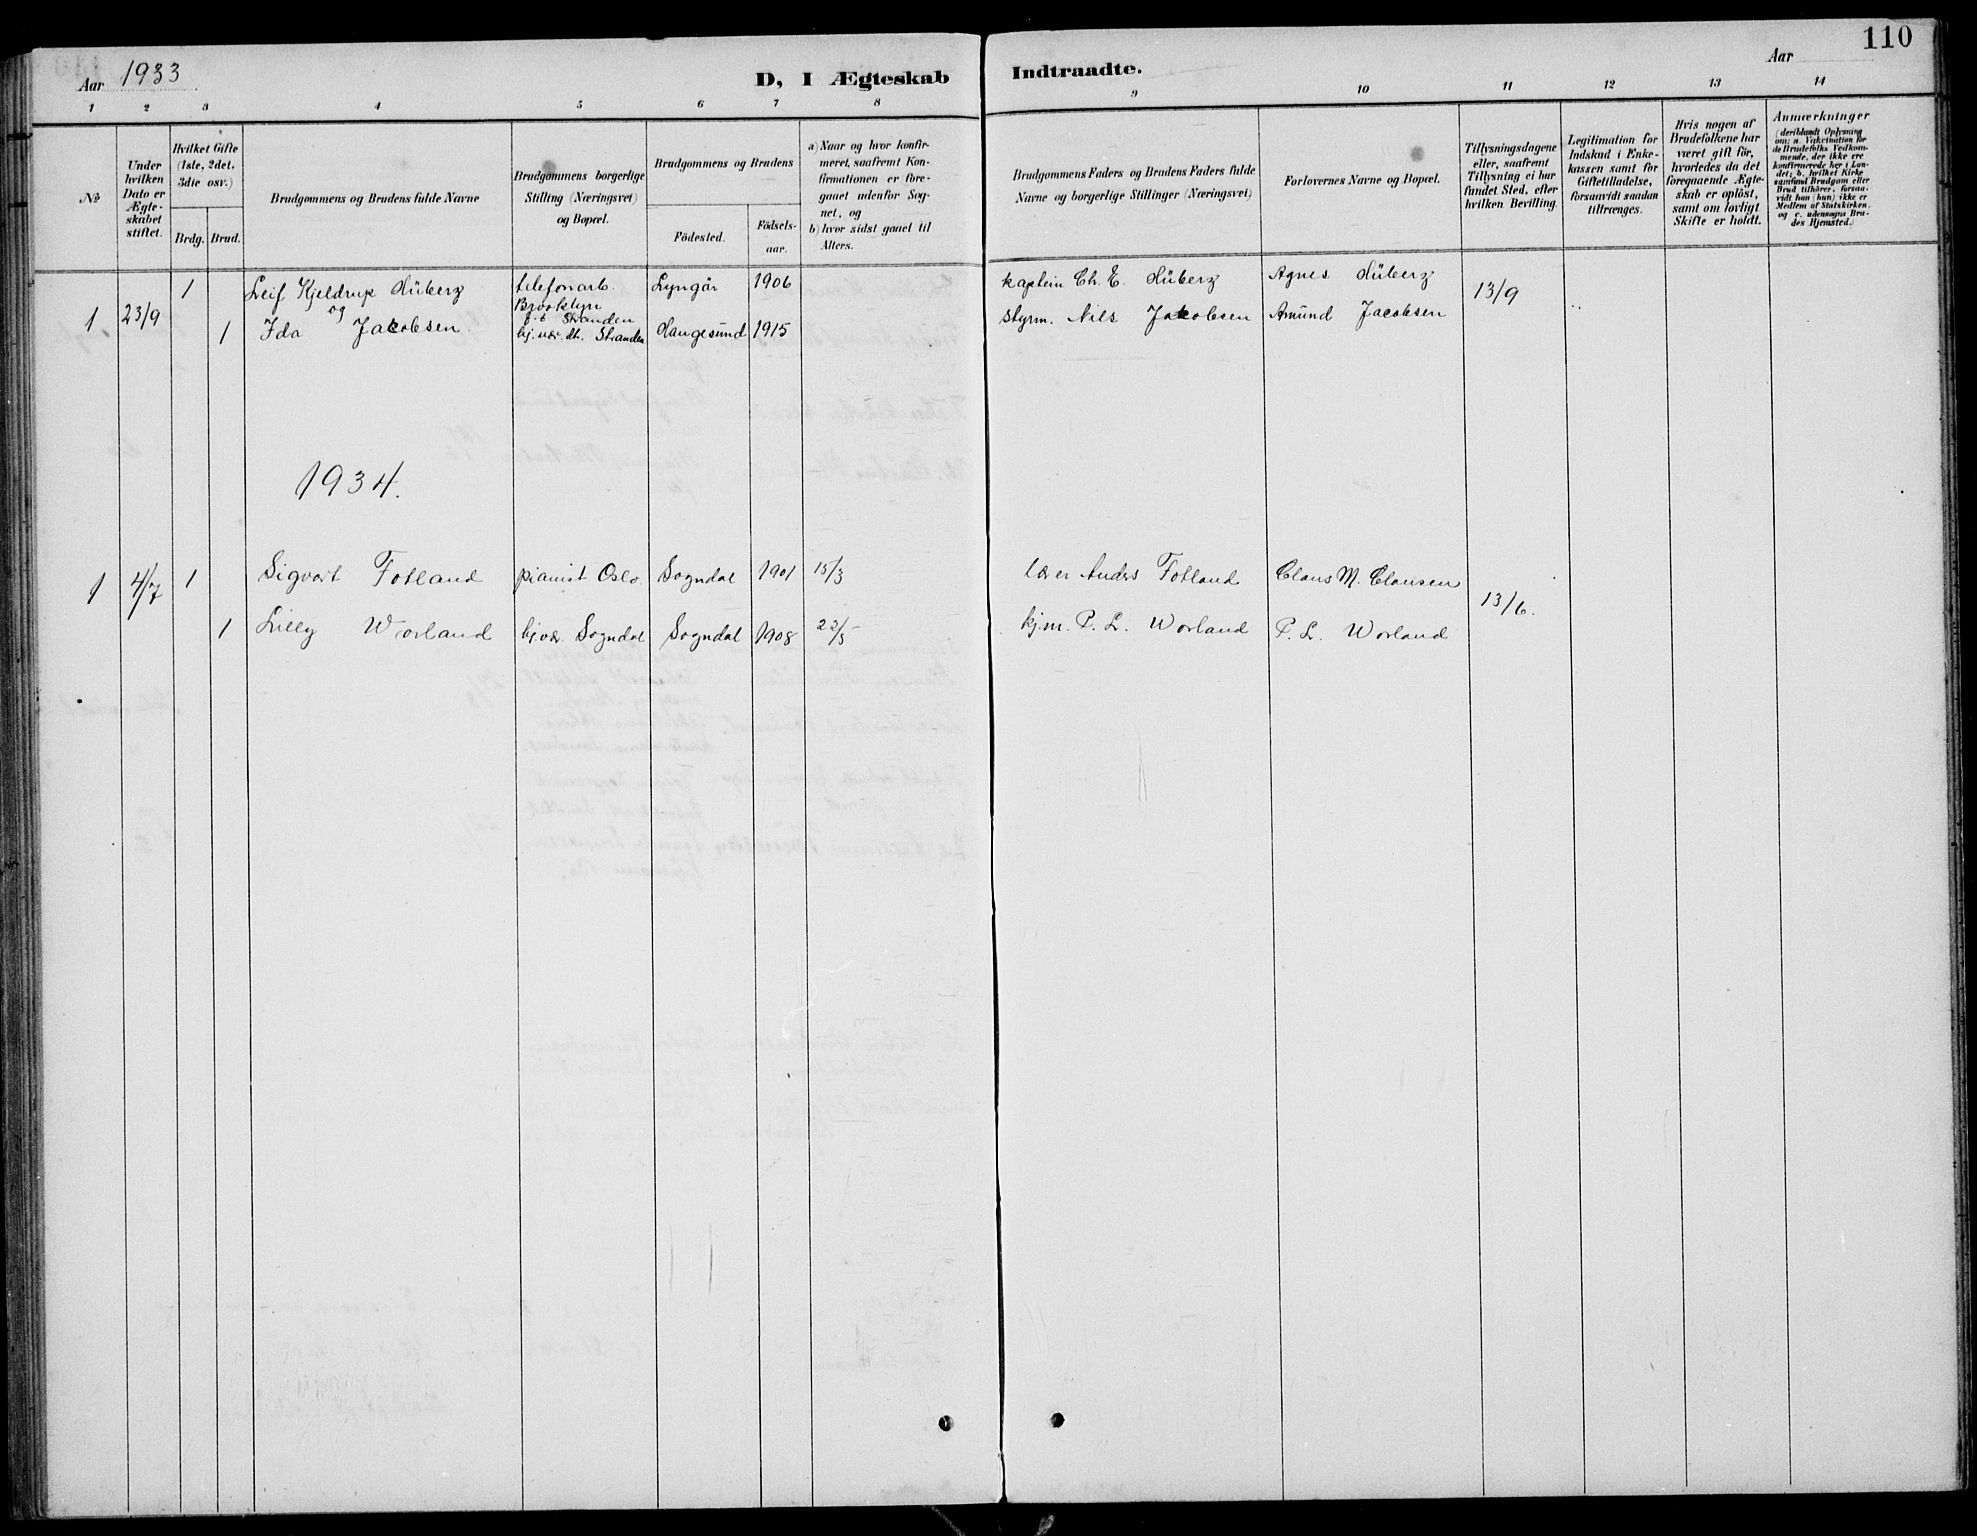 110
Aar 1933
D, I Ægteskab Indtraadte.
Aar
1 2 3 4 5 6 7 8 9 10 11 12 13 14
№
Under hvilken Dato er Ægte-skabet stiftet.
Hvilket Gifte (1ste, 2det, 3die osv.)
Brdg. Brud.
Brudgommens og Brudens fulde Navne
Brudgommens borgerlige Stilling (Næringsvei) og Bopæl.
Brudgommens og Brudens
Födested.
Födsels-aar.
a) Naar og hvor konfir-
meret, saafremt Kon-
firmationen er fore-
gaaet udenfor Sog-
net, og
b) hvor sidst gaaet til
Alters.
Brudgommens Faders og Brudens Faders fulde
Navne og borgerlige Stillinger (Næringsvei)
Forlovernes Navne og Bopæl.
Tillysningsdagene
eller, saafremt
Tillysning ei har
fundet Sted, efter
hvilken Bevilling.
Legitimation for
Indskud i Enke-
kassen samt for
Giftetilladelse,
forsaavidt saadan
tiltrænges.
Hvis nogen af
Brudefolkene har
været gift för,
hvorledes da det
foregaaende Ægte-
skab er oplöst,
samt om lovligt
Skifte er holdt.
Anmærkninger
(deriblandt Oplysning
om: a. Vakcination for
de Brudefolks Vedkom-
mende, der ikke ere
konfirmerede her i Lan-
det; b. hvilket Kirke-
samfund Brudgom eller
Brud tilhörer, forsaa-
vidt han (hun) ikke er
Medlem af Statskirken,
og c. udensogns Bru-
des Hjemsted.)
1 23/9 1 Leif Kjeldrup Hüberg telefonarb. Brooklyn Lyngör 1906 kaptein Ch. E. Hüberg Agnes Hüberg 13/9
og Stranden
1 Ida Jakobsen. hj. vær. dt. Stranden Haugesund 1915 styrm. Nils Jakobsen Amund Jacobsen
1934.
1 4/7 1 Sigvart Fotland pianist Oslo. Sogndal 1901 15/3 Anders Fotland Claus M. Clausen 13/6.
1 Lilly Worland hj.vær. Sogndal Sogndal 1908 22/5 kj.m. P. L. Worland P. L. Worland